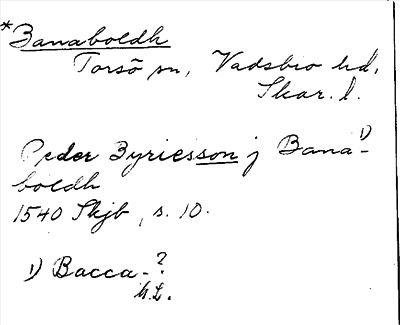 *Banaboldh
Torsö sn, Vadsbro hd,
Skar. l.
Peder Byriesson j Bana-¹⁾
boldh
1540 Skjb, s. 10.
1) Bacca-?